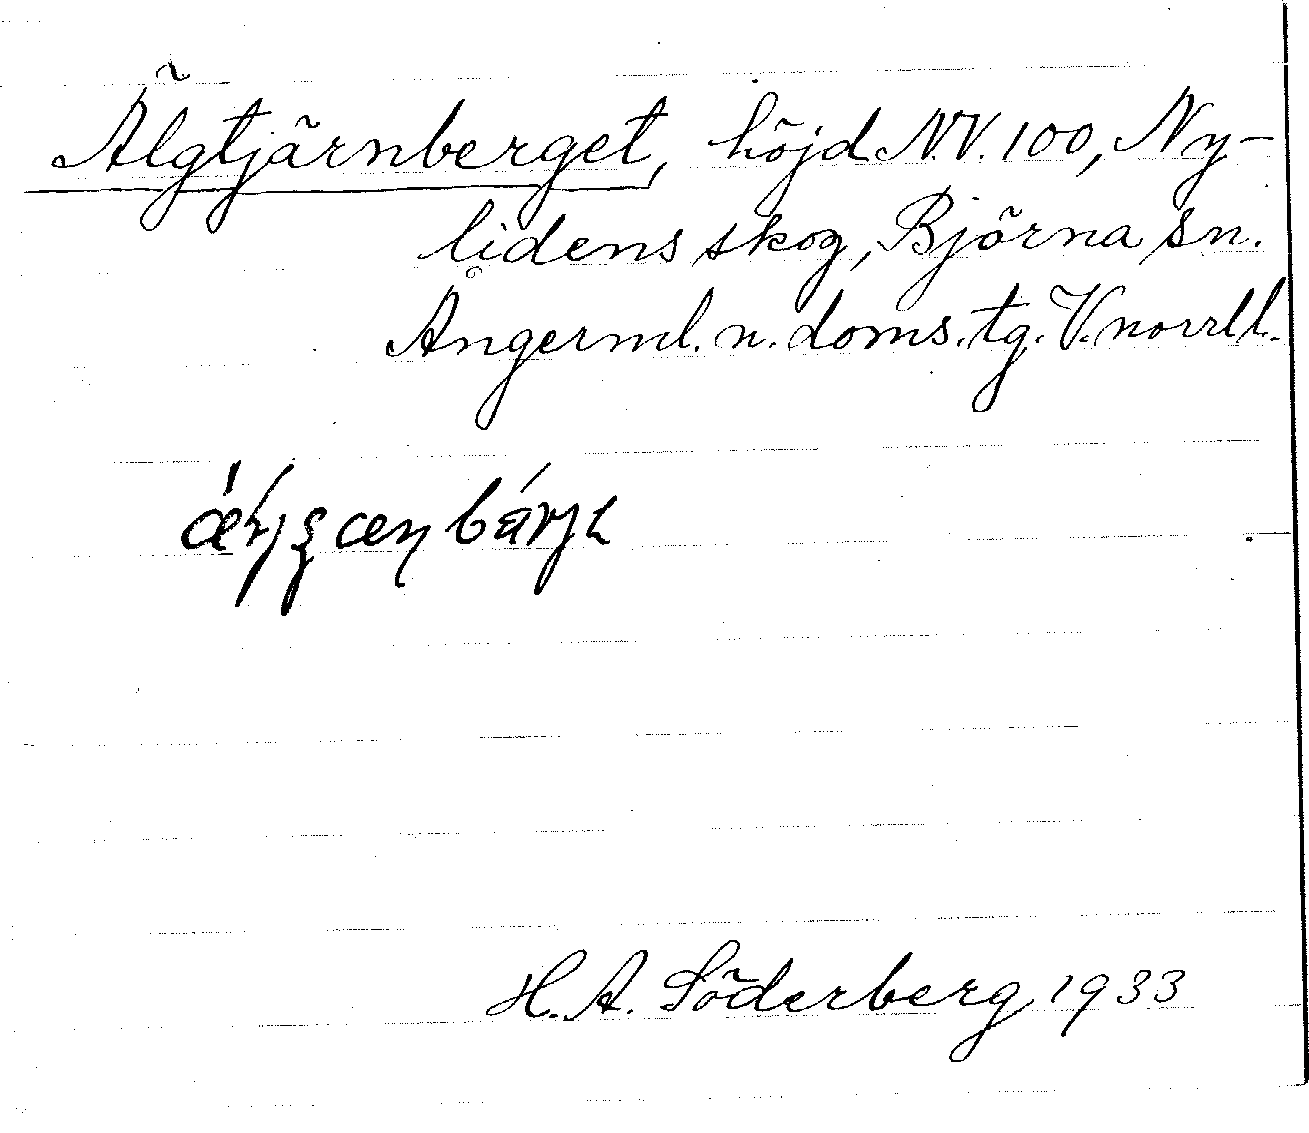 Älgtjärnberget, höjd N.V. 100, Ny-
lidens skog, Björna sn.
Ångerml. n. doms. tg. V.norrl l.
H. A. Söderberg 1933